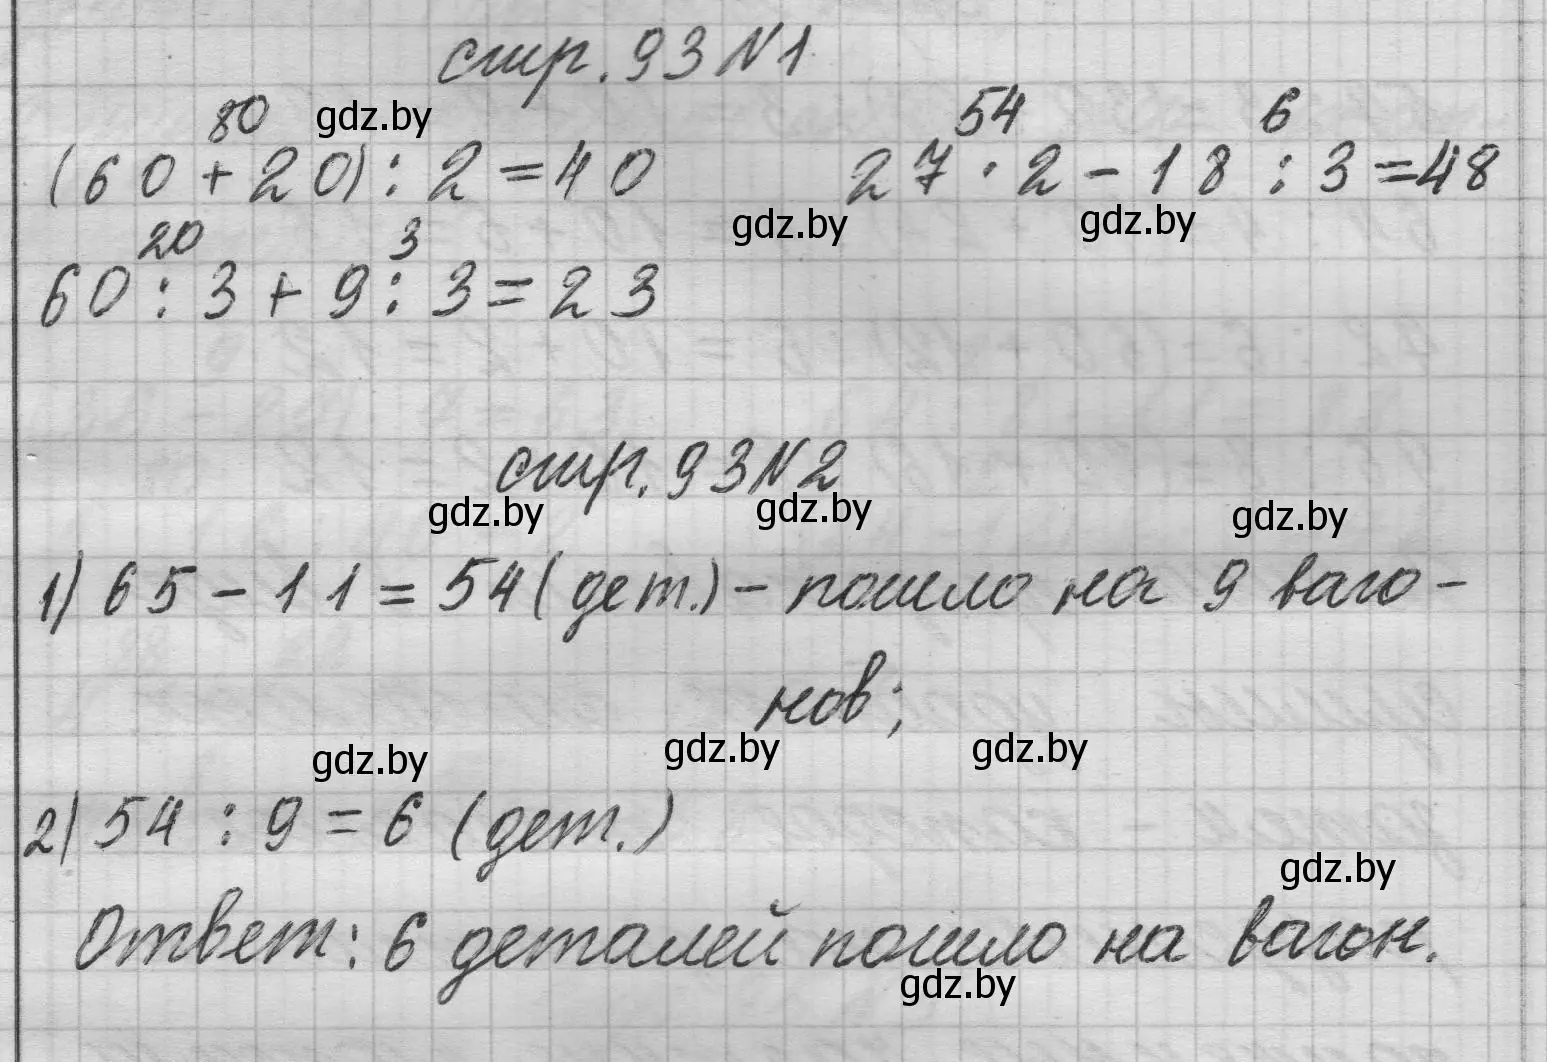 стр. 93 N1
80 gdz.by 54 6
(60 + 20) : 2 = 40 27 · 2 - 18 : 3 = 48
gdz.by gdz.by
20 3
60 : 3 + 9 : 3 = 23
стр. 93 N2
gdz.by gdz.by gdz.by
1) 65 - 11 = 54 (дет.) - пошло на 9 ваго-
нов;
gdz.by gdz.by gdz.by
2) 54 : 9 = 6 (дет.)
gdz.by
Ответ: 6 деталей пошло на вагон.
gdz.by